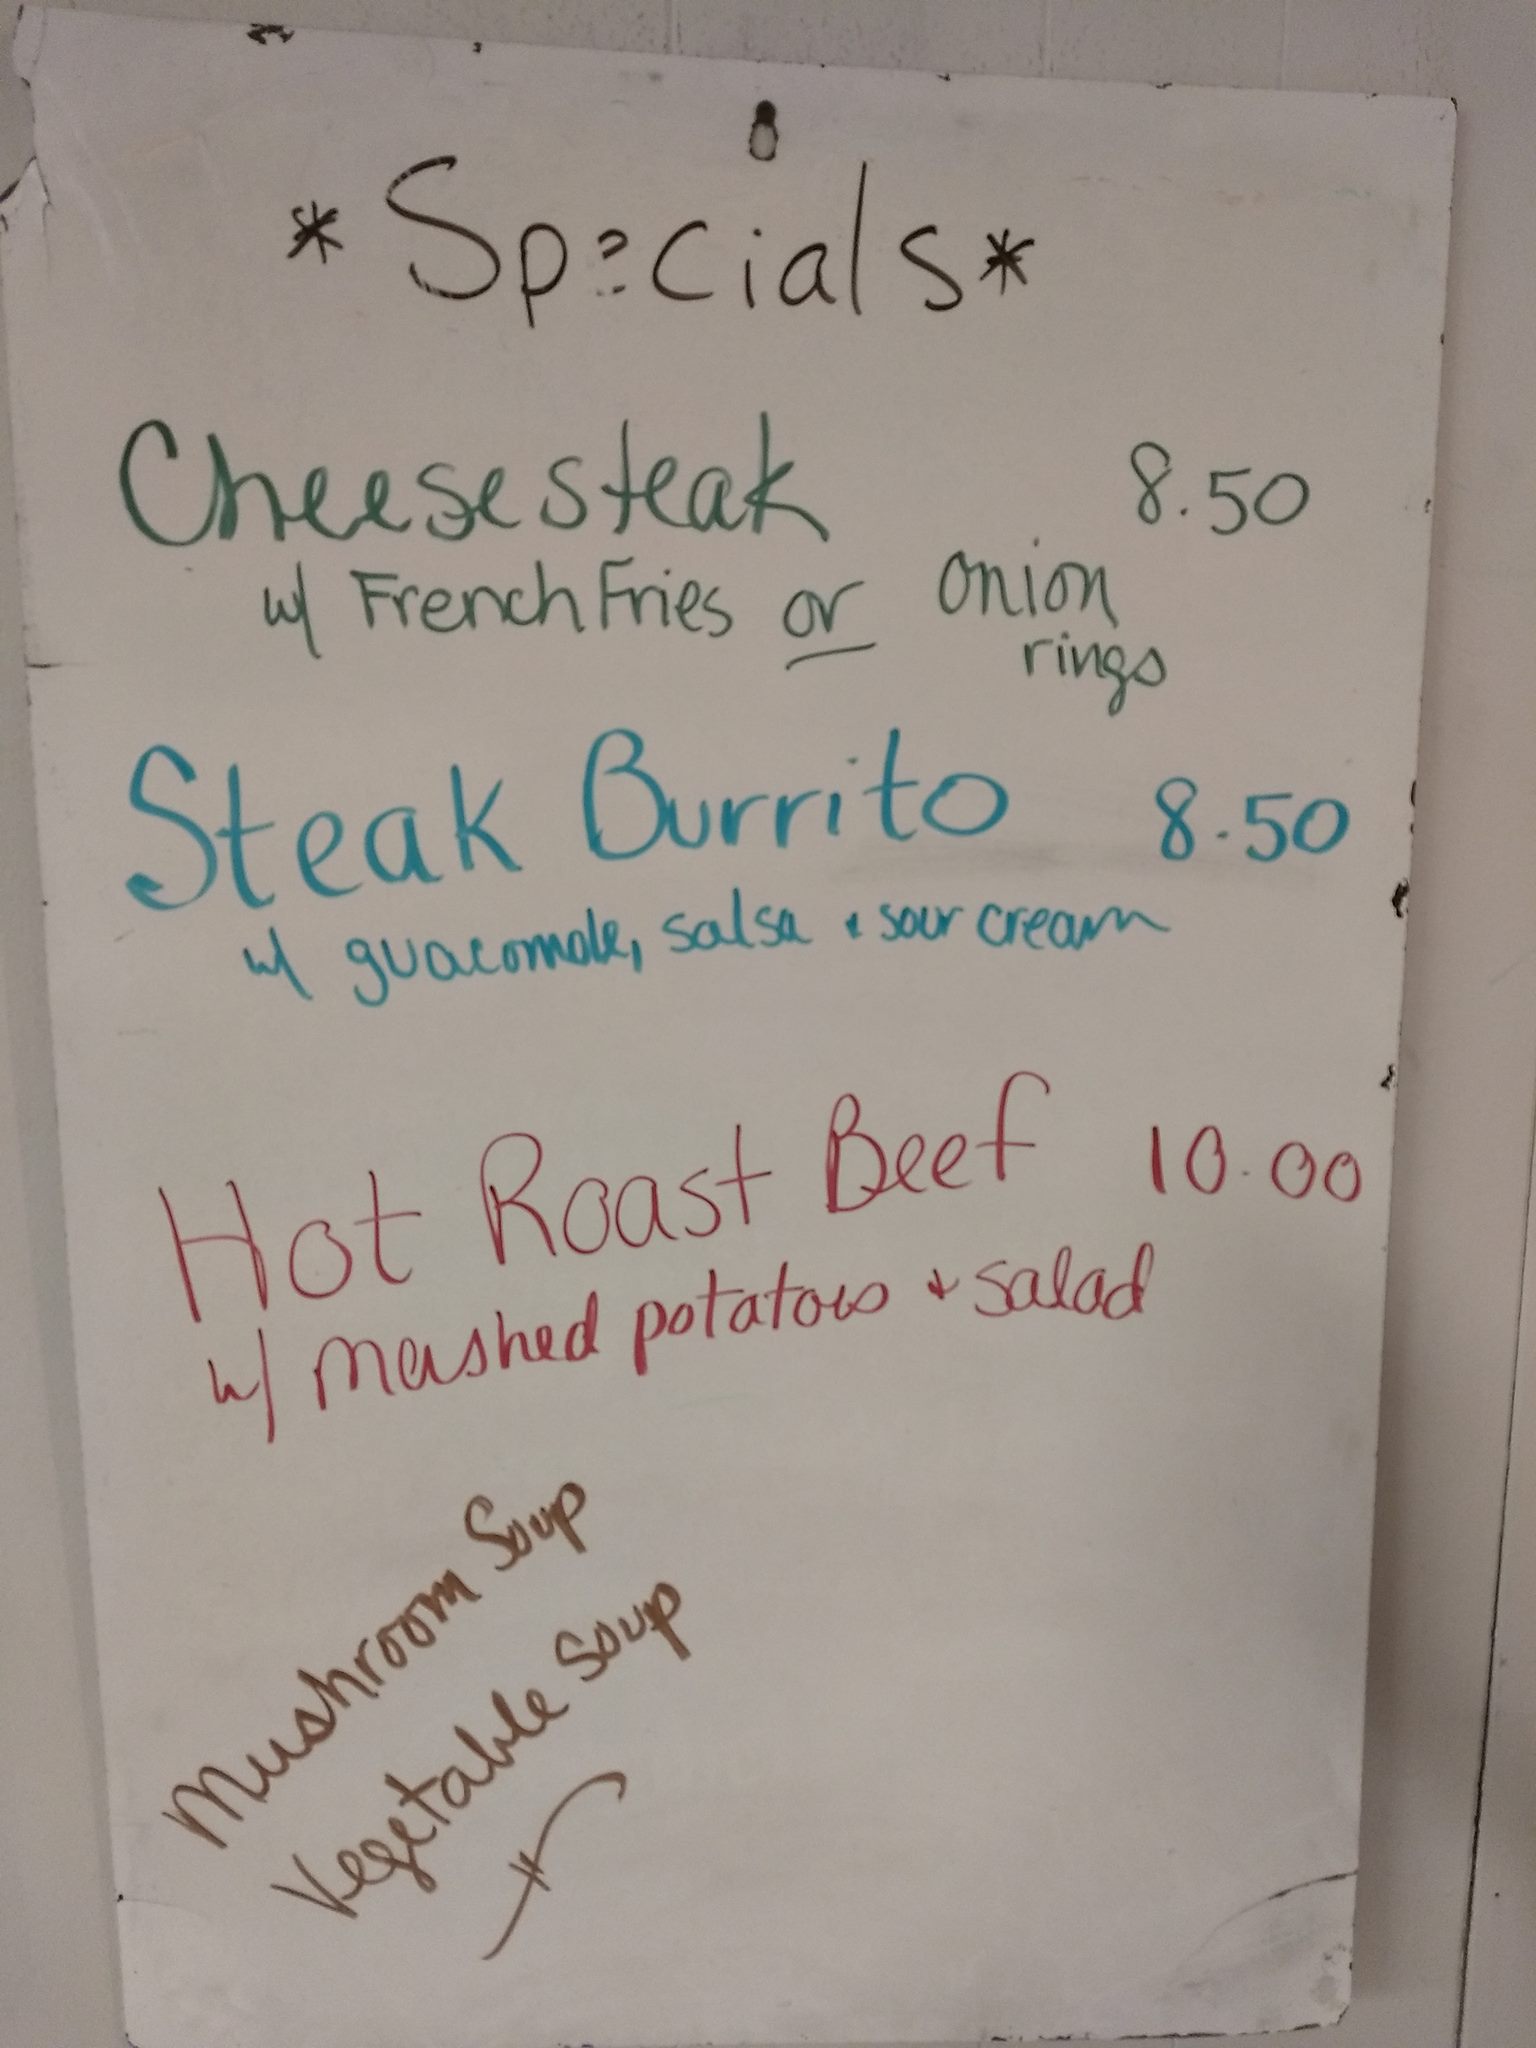 *Specials*
Cheesesteak 8.50
w/ French Fries or onion
rings
Steak Burrito 8.50
w/ guacomole, salsa + sour cream
Hot Roast Beef 10.00
w/ mashed potatoes + salad
Mushroom Soup
Vegetable Soup